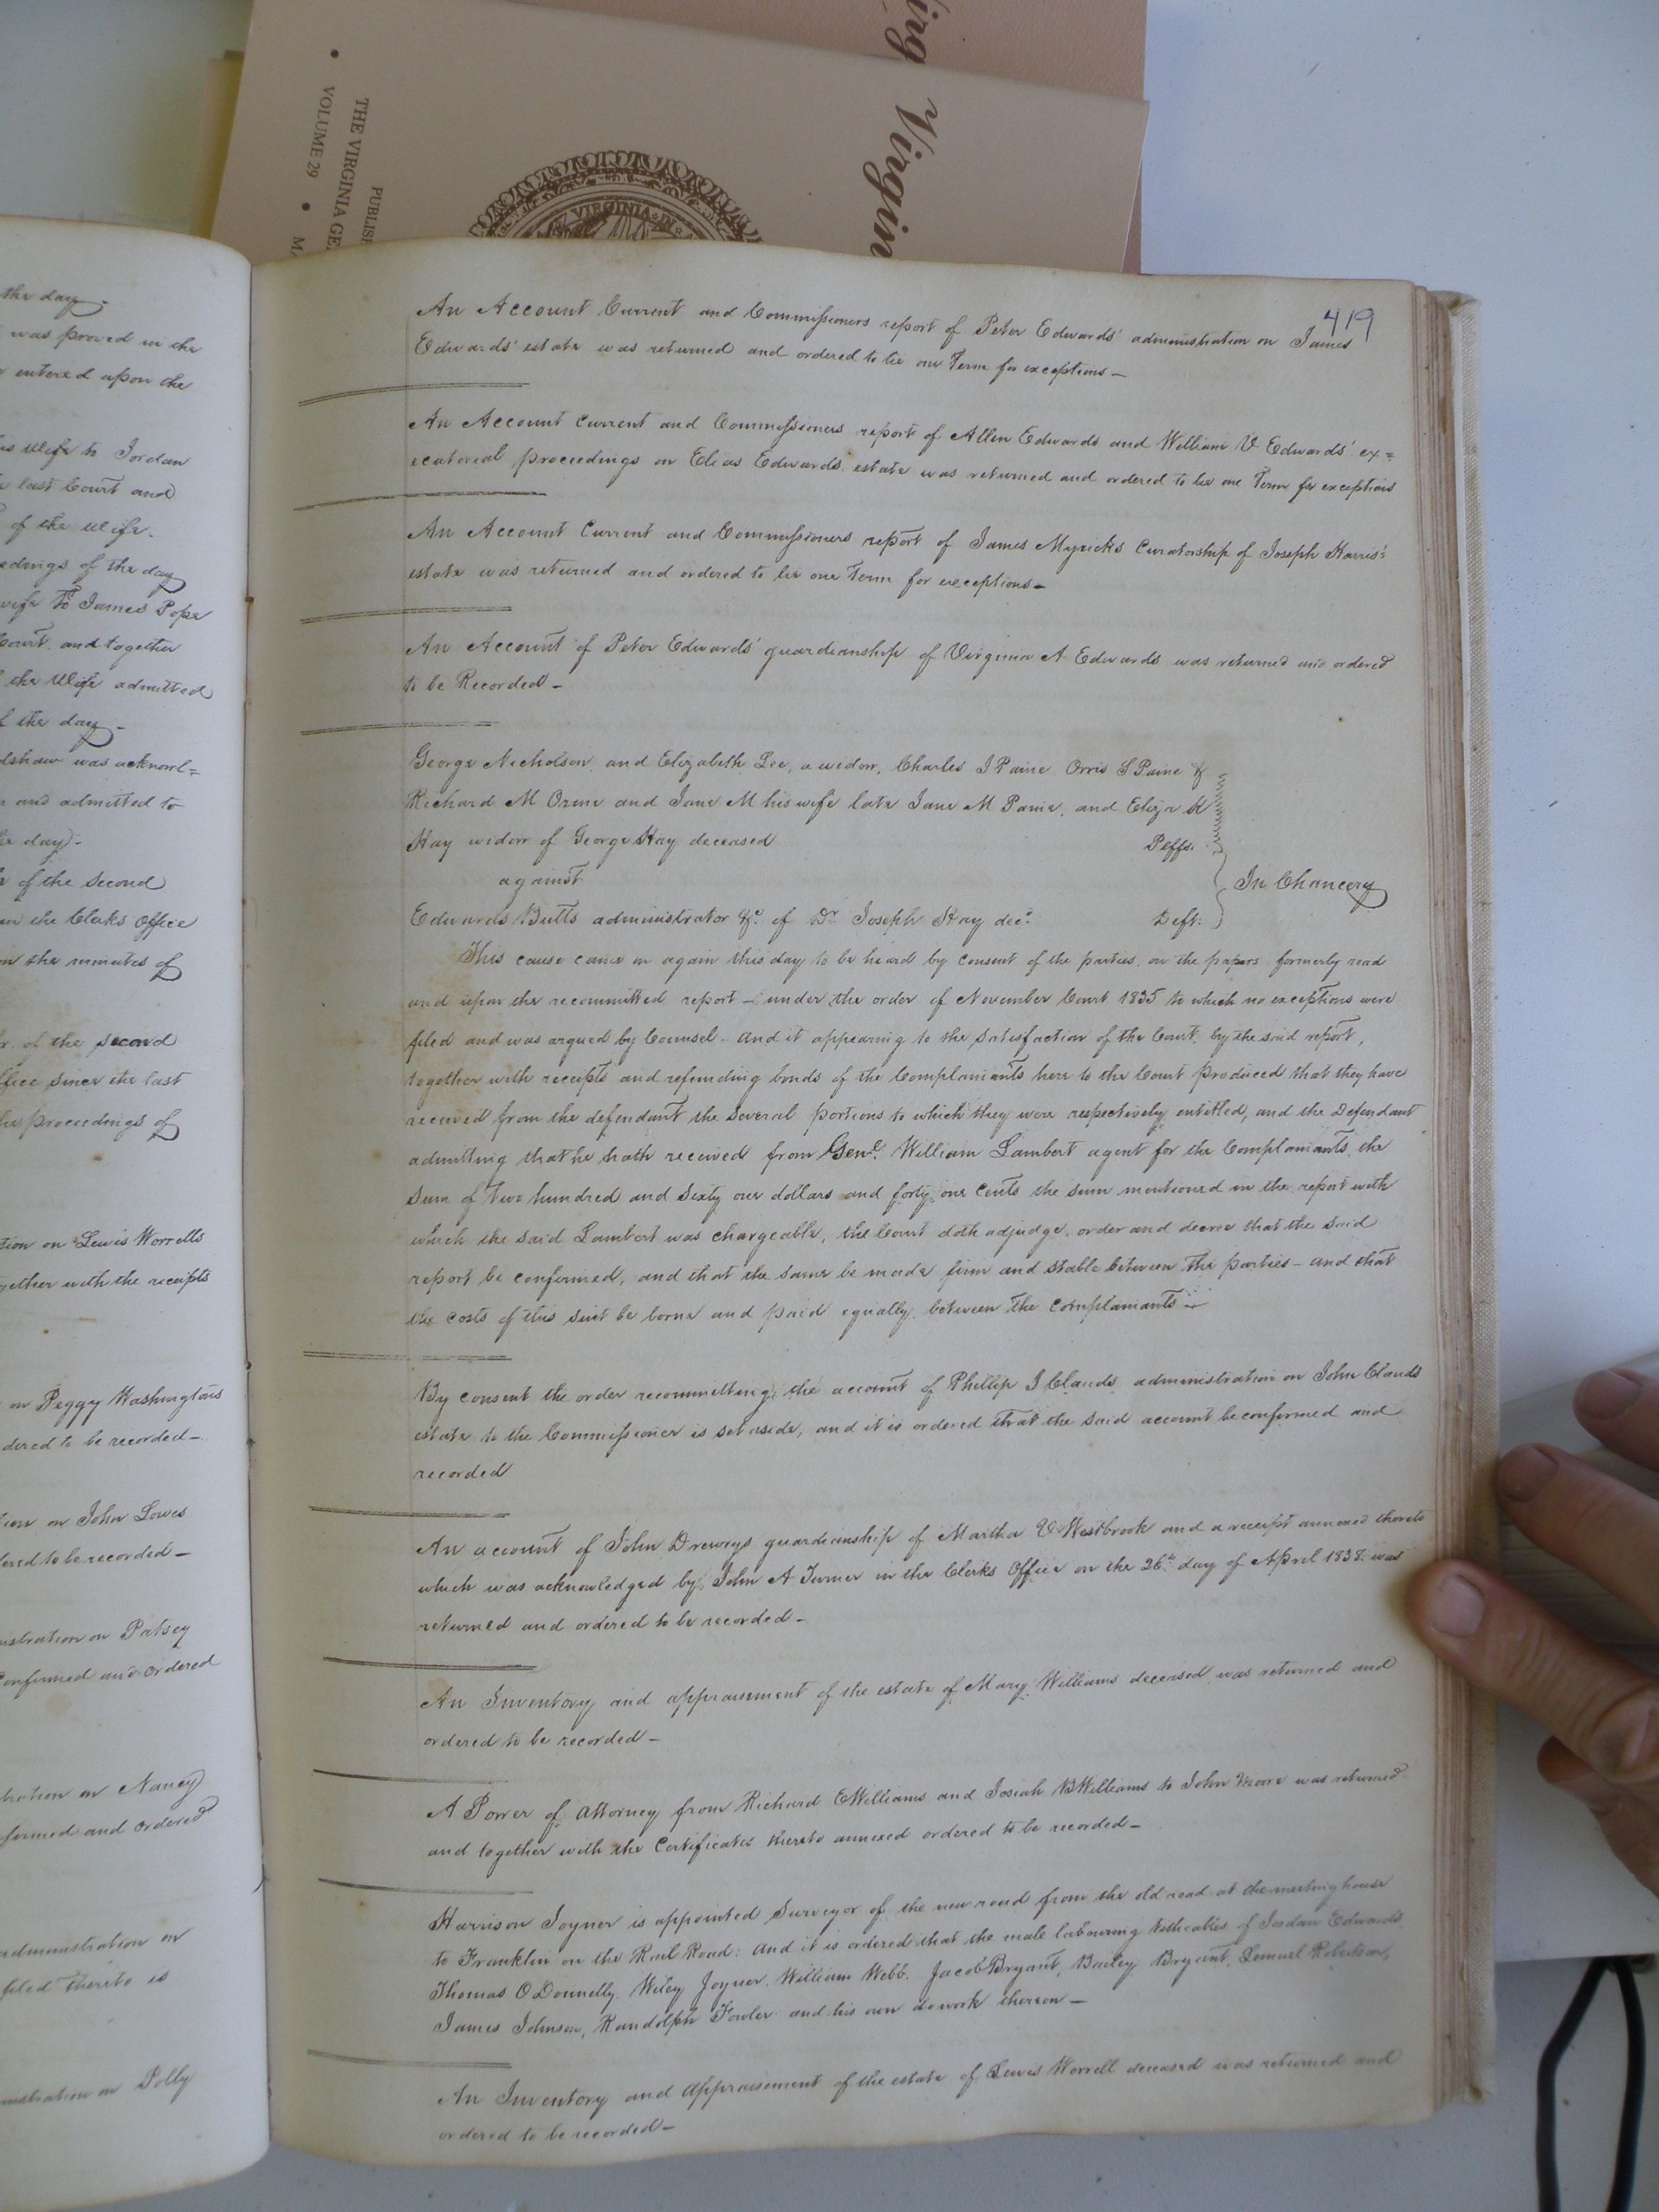 Virgin
THE VIRGINIA GE
VOLUME 29
PUBLIS
VIRGINIA IN
the day
was proved in the
entered upon the
is Wife to Jordan
last Court and
of the Wife.
edings of the day
wife to James Pope
Court, and together
the Wife admitted
the day
dshaw was acknowl=
and admitted to
day
of the second
in the Clerks Office
on the minutes of
of the second
ffice since the last
he proceedings of
tion on Lewis Worrells
gether with the receipts
on Peggy Washingtons
dered to be recorded
tion on John Lowes
ered to be recorded
nistration on Patsey
Confirmed and ordered
tration on Nancy
firmed and ordered
administration on
filed thereto is
nistration on Polly
419
An Account Current and Commissioners report of Peter Edwards' administration on James
Edwards' estate was returned and ordered to lie one Term for exceptions
An Account Current and Commissioners report of Allen Edwards and William V Edwards' ex=
ecutorial proceedings on Elias Edwards estate was returned and ordered to lie one Term for exceptions
An Account Current and Commissioners report of James Myricks Curatorship of Joseph Harris's
estate was returned and ordered to lie one Term for exceptions
An Account of Peter Edwards' guardianship of Virginia A Edwards was returned and ordered
to be Recorded
George Nicholson, and Elizabeth Lee, a widow, Charles J Paine Orris S Paine &
Richard M Orme and Jane M his wife late Jane M Paine, and Eliza K
Hay widow of George Hay deceased Plffs.
against In Chancery
Edwards Butts administrator &c of Dr. Joseph Hay decd. Deft.
This cause came on again this day to be heard by consent of the parties, on the papers formerly read
and upon the recommitted report under the order of November Court 1835 to which no exceptions were
filed and was argued by Counsel and it appearing to the satisfaction of the Court, by the said report,
together with receipts and refunding bonds of the Complainants here to the Court produced that they have
received from the defendant the several portions to which they were respectively entitled, and the Defendant
admitting that he hath received from Genl. William Lambert agent for the Complainants, the
sum of two hundred and sixty one dollars and forty one cents the sum mentioned in the report with
which the said Lambert was chargeable, the Court doth adjudge, order and decree that the said
report be confirmed, and that the same be made firm and stable between the parties and that
the costs of this suit be borne and paid equally between the complainants
By consent the order recommitting the account of Phillip J Clauds administration on John Clauds
estate to the Commissioner is set aside, and it is ordered that the said account be confirmed and
recorded
An account of John Drewrys guardianship of Martha V Westbrook and a receipt annexed thereto
which was acknowledged by John A Turner in the Clerks Office on the 26th day of April 1838 was
returned and ordered to be recorded
An Inventory and appraisement of the estate of Mary Williams deceased was returned and
ordered to be recorded
A Power of attorney from Richard E Williams and Josiah B Williams to John Moore was returned
and together with the Certificates thereto annexed ordered to be recorded
Harrison Joyner is appointed Surveyor of the new road from the old road at the meeting house
to Franklin on the Rail Road: and it is ordered that the male labouring titheables of Jordan Edwards
Thomas O Donnelly, Wiley Joyner, William Webb, Jacob Bryant, Bailey Bryant, Lemuel
James Johnson, Randolph Fowler and his own do work thereon
An Inventory and appraisement of the estate of Lewis Worrell deceased was returned and
ordered to be recorded